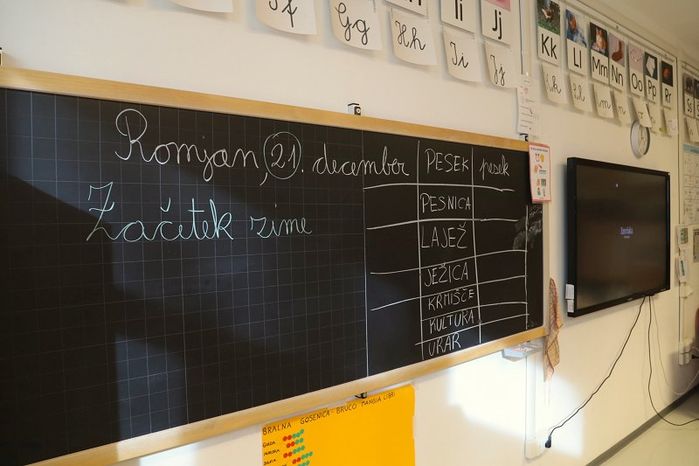 Gg
Hh
Ii
Jj
Ii
Jj
Kk
Ll
Mm
Nn
Oo
Pp
Rr
Romjan, 21. december
Začetek zime
PESEK pesek
PESNICA
LAJEŽ
JEŽICA
KRMIŠČE
KULTURA
URAR
BRALNA GOSENICA - BRUCO MANGIA LIBRI